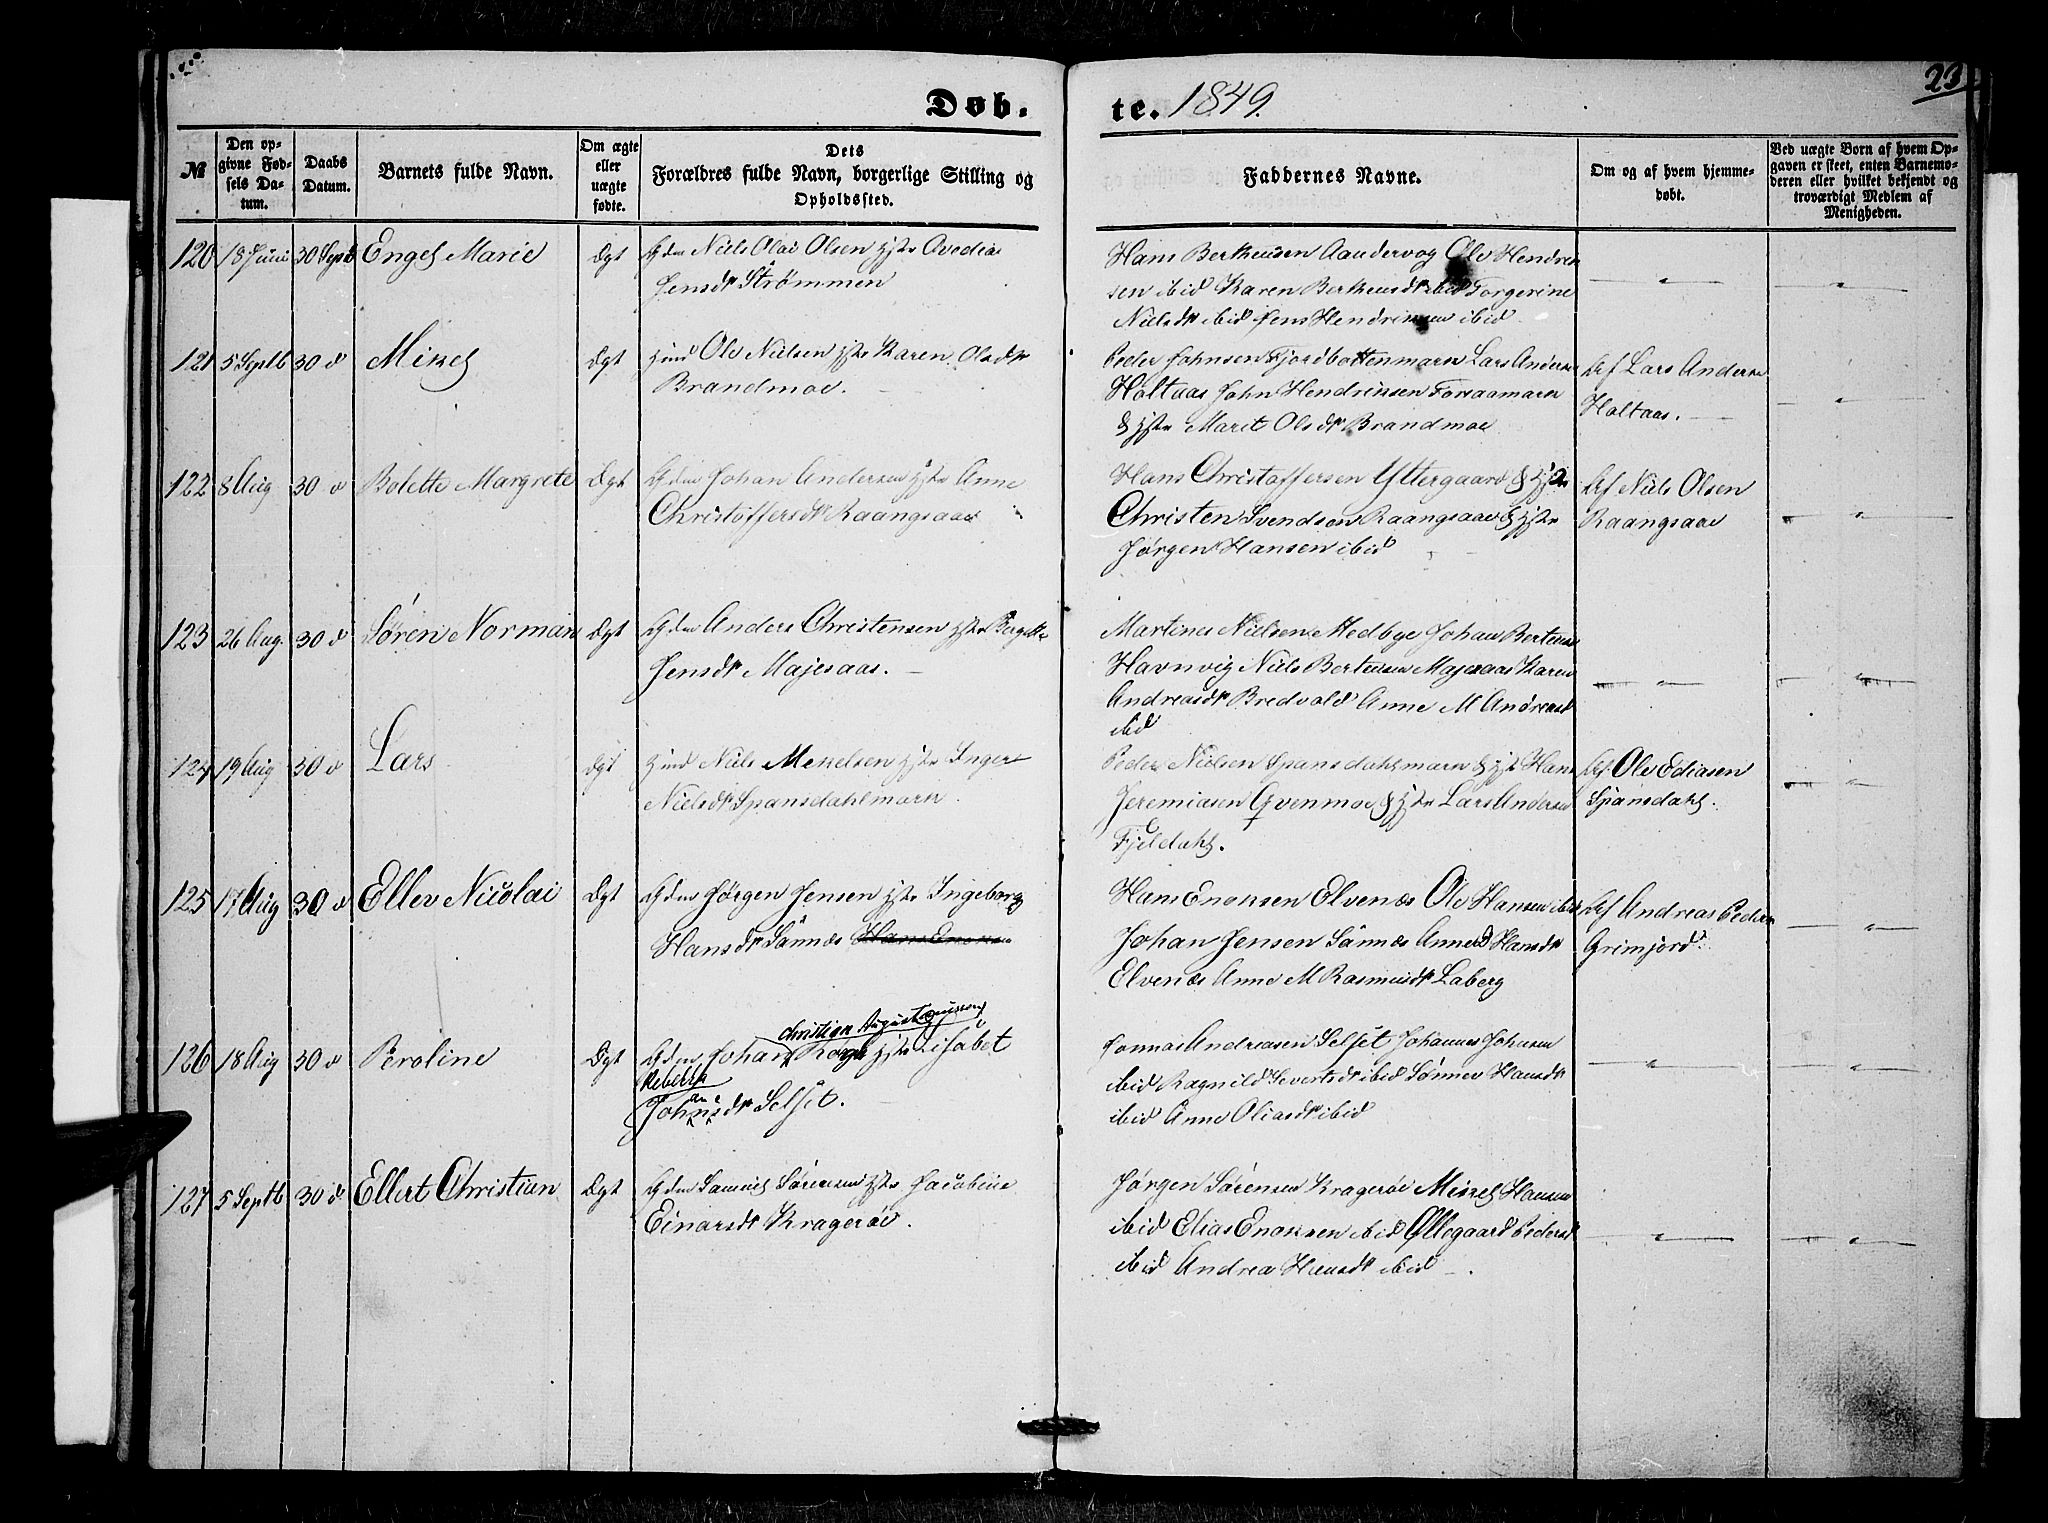 23
Døb.
te. 1849.
№
Den op-
givne Fød-
sels Da-
tum.
Daabs
Datum.
Barnets fulde Navn.
Om ægte
eller
uægte
fødte.
Dets
Forældres fulde Navn, borgerlige Stilling og
Opholdssted.
Faddernes Navne.
Om og af hvem hjemme-
døbt.
Ved uægte Børn af hvem Op-
gaven er skeet, enten Barnemo-
deren eller hvilket bekjendt og
troværdigt Medlem af
Menigheden.
120 18 Juni 30 Septb Engel Marie Ægt Gdm Niels Olai Olsen Hstr Ovedia
Jensdtr Strømmen
Hans Bertheusen Aandervog Ole Hendrik
sen ibid Karen Bertheusdtr ibid Torgerine
Nielsdtr ibid Jens Hendriksen ibid
121 5 Septb 30 d Mikel Ægt Ind Ole Nielsen Hstr Karen Olsdtr
Brandmoe.
Peder Johnsen Fjordbottenmark Lars Anders
Holtaas John Hendriksen Forsaamark
& Hstr Marit Olsdtr Brandmoe
Af Lars Anders
Holtaas.
122 8 Aug 30 d Bolette Margrete Ægt Gdm Johan Andersen Hstr Anne
Christoffersdtr Raangsaae
Hans Christoffersen Yttergaard & Hstr
Christen Svendsen Raangsaae & Hstr
Jørgen Hansen ibid
Af Niels Olsen
Raangsaae
123 26 Aug. 30 d Søren Norman Ægt Gdm Anders Christensen Hstr Bergitte
Jensdtr Majesaas.
Martines Nielsen Medbye Johan Berteus
Havnvig Niels Berteusen Majesaas Karen
Andreasdtr Bredvold Anne M Andreasd
ibid
124 19 Aug 30 d Lars Ægt Ind Niels Mekelsen Hstr Inger
Nielsdtr Spansdahlmark.
Peder Nielsen Spansdahlmark & Hstr Hans
Jeremiasen Qvenmoe & Hstr Lars Anderse
Fjeldahl.
Af Ole Ediasen
Spansdahl.
125 17 Aug 30 d Ellev Nicolai Ægt Gdm Jørgen Jensen Hstr Ingeborg
Hansdtr Sánnæs Hans Enoksen
Hans Enoksen Elvenæs Ole Hansen ibid
Johan Jensen Sánnæs Anne D Hansdtr
Elvenæs Anne M Rasmusdtr Laberg
Af Andreas Peders
Grimjord.
126 18 Aug 30 d Peroline Ægt Gdm Johan Christian Augustinussen Hstr Lisabet
Rebekka
Johansdtr Selset.
Andreasen Selset Johannes Johnsen
ibid Ragnild Severtsdtr ibid Sønnev Hansdtr
ibid Anne Oliasdtr ibid
127 5 Septb 30 d Ellert Christian Ægt Gdm Samuel Sørensen Hstr Jacobine
Einarsdtr Kragerøe.
Jørgen Sørensen Kragerøe Mikel Hansen
ibid Elias Enoksen ibid Ollegaard Pedersd
ibid Andrea Hansdtr ibid